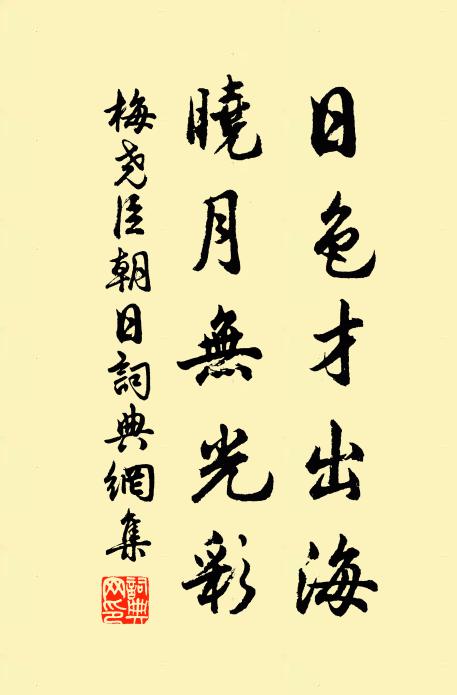 日色才出海
曉月無光彩
梅堯臣朝日詞典網集
詞典網印